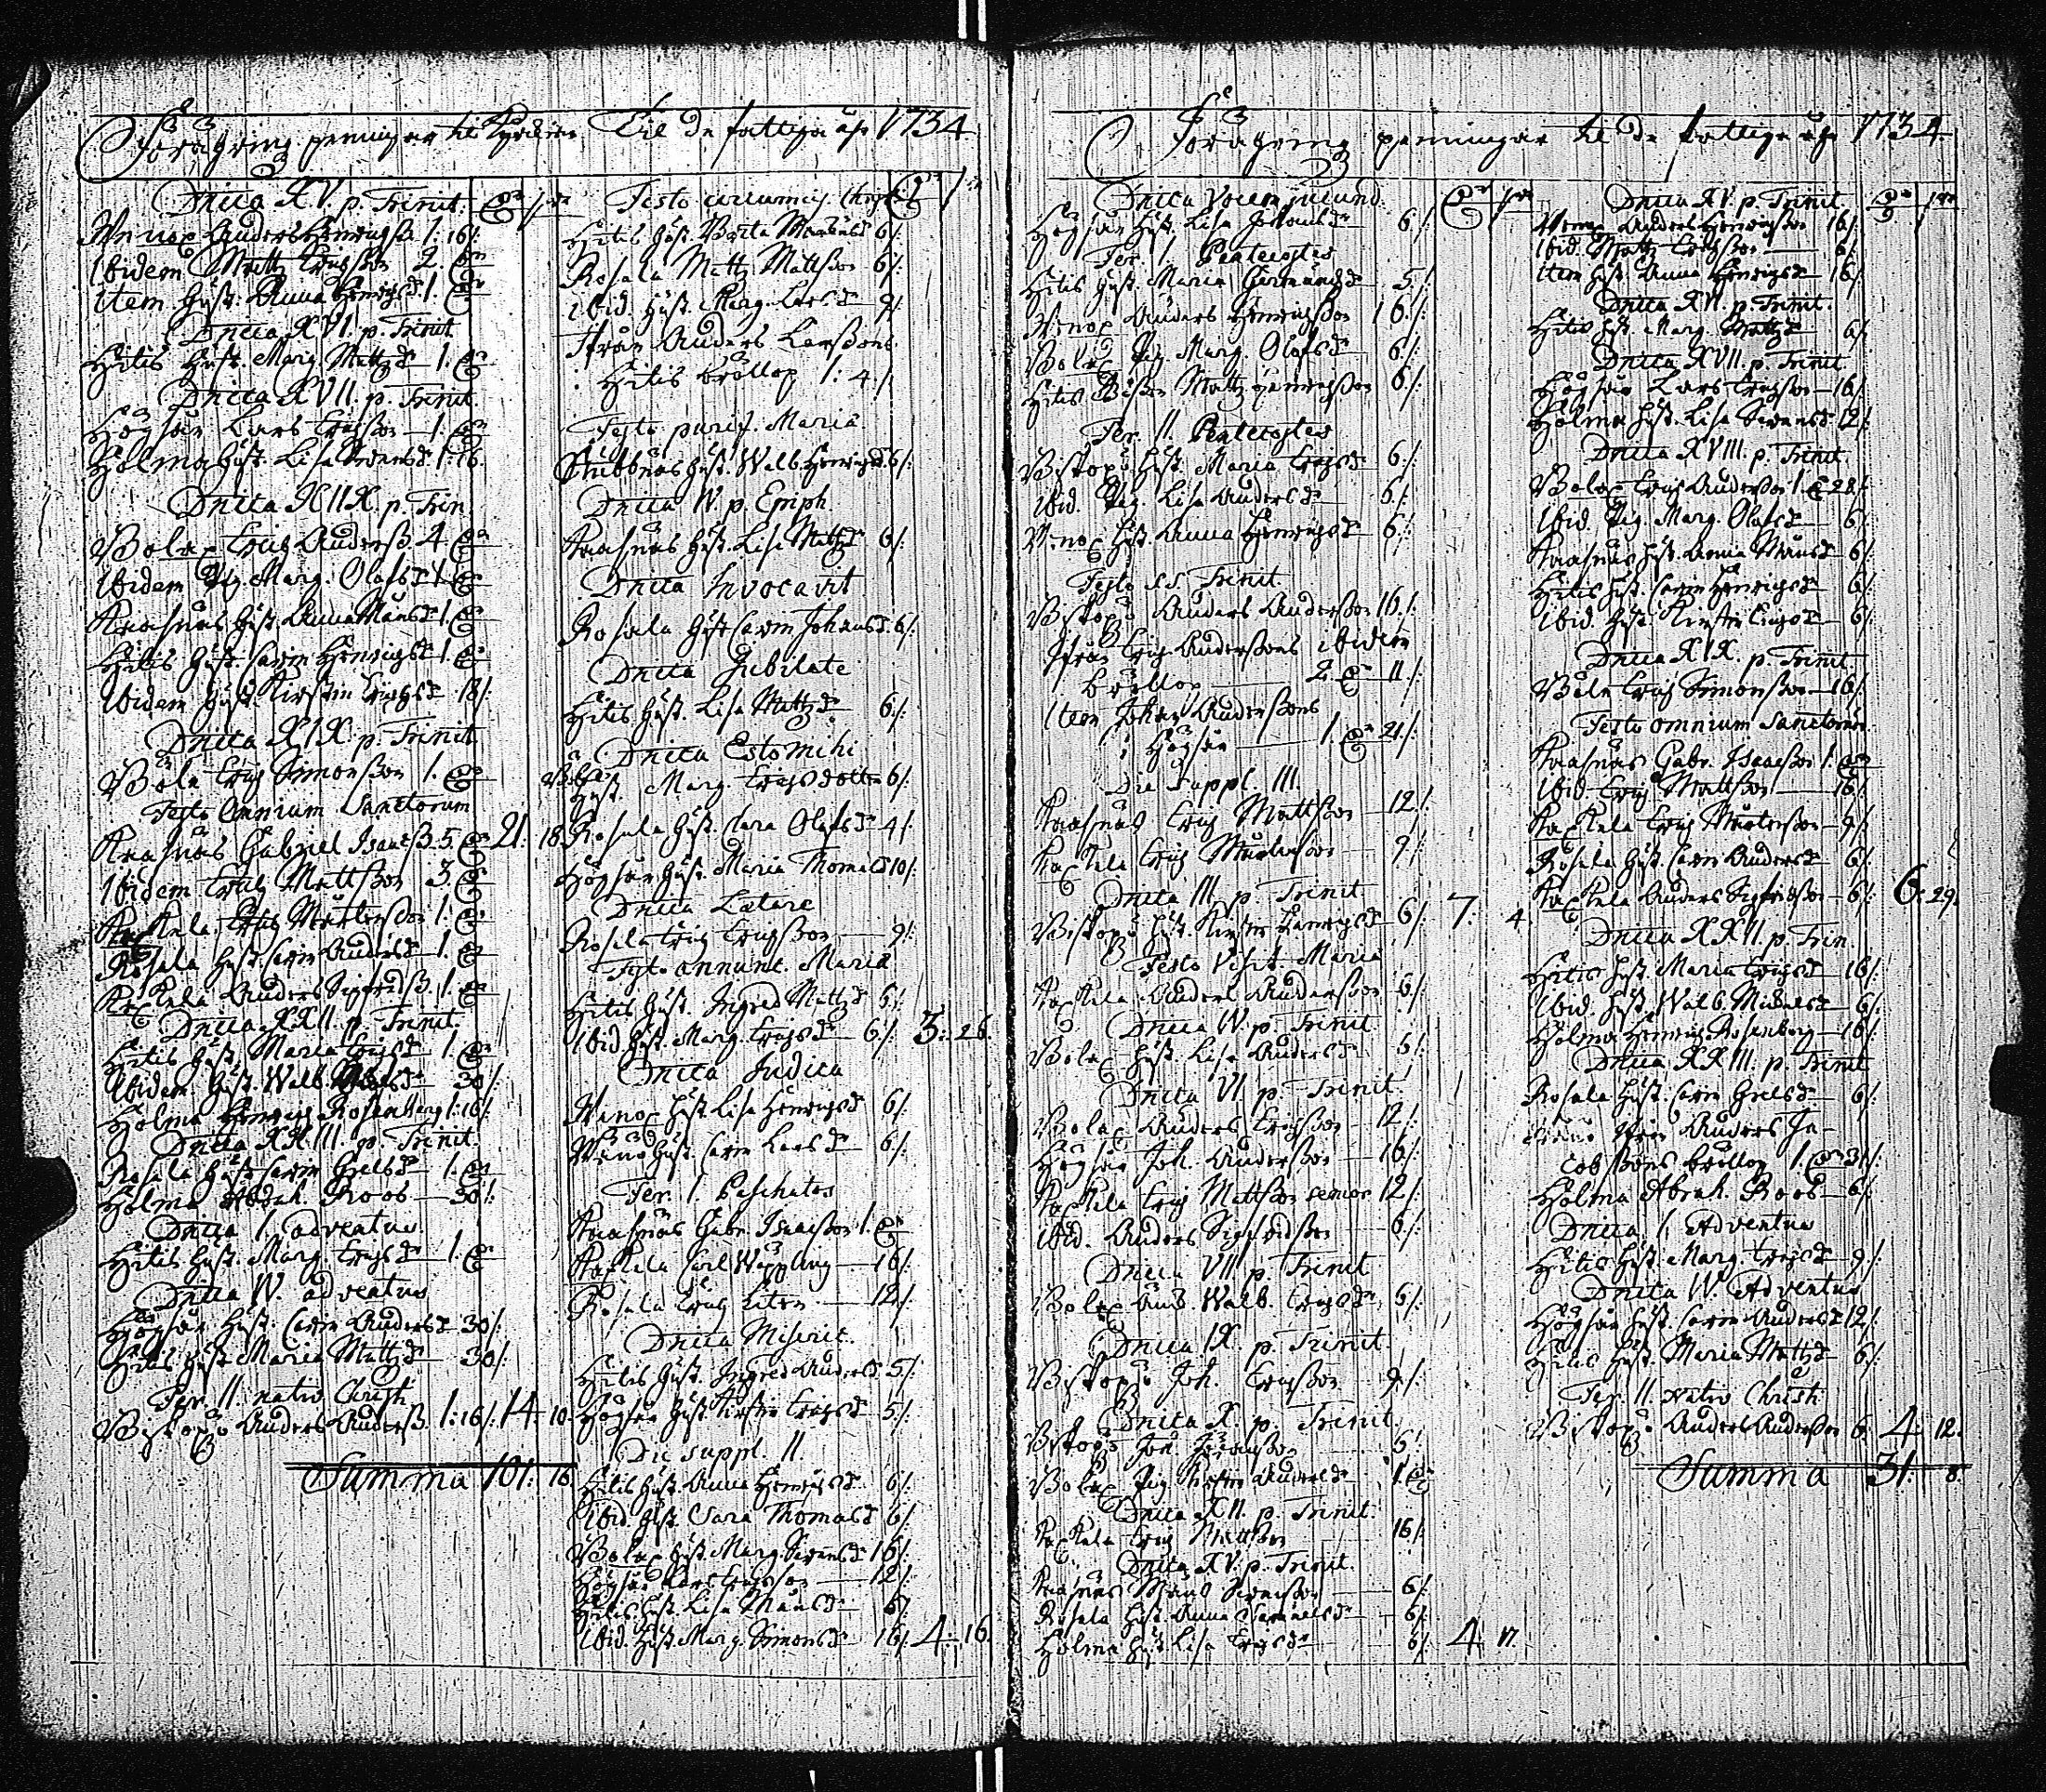 Förähring penningar til Kyrckian Til de fattiga åhr 1734
Dnica XV. p. Trinit.
Wenox Anders Henrichss. 1: 16/:
Ibidem Mattz Erichsson 2
item Hust. Anna Henrichsd. 1.
Dnica XVI. p. Trinit
Hitis Hust. Marg. Mattzd. 1.
Dnica XVII. p. Trinit.
Högsår Lars Erichsson 1.
Holma Hust. Lisa Svensd. 1: 16.
Dnica XIIX. p. Trin
Bolax Erich Anderss. 4.
Ibidem Pig. Marg. Olofsd. 1.
Kasnäs Hust. Anna Månsd. 1.
Hitis Hust. Carin Henrichsd. 1.
Ibidem Hust. Kirstin Erichsd. 18/:
Dnica XIX. p. Trinit
Böle Erich Simonsson 1.
Festo Omnium Sanctorum
Kasnäs Gabriel Isaacss. 5. 21: 18
Ibidem Erich Mattsson 3.
Kaxkela Erich Mårtensson 1.
Rosala Hust. Carin Andersd. 1.
Kaxkela Anders Sigfredss. 1.
Dnica XXII. p. Trinit.
Hitis Hust. Maria Erichsd. 1.
Ibidem Hust. Walb. 30/:
Holma Henrich Rosenberg 1: 16/:
Dnica XXIII. p. Trinit.
Rosala Hust. Carin Grelsd. 1.
Holma Abrah. Roos 30/:
Dnica I. adventus
Hitis Hust. Marg. Erichsd. 1.
Dnica IV. adventus
Högsår Hust. Carin Andersd. 30/:
Hitis Hust. Maria Mattzd. 30/:
Fer. II. nativ Christi
Biskopsö Anders Anderss. 1: 16/: 14: 10.
Summa 101: 16.
Festo circumcis. Christi
Hitis Hust. Brita Markusd. 6/:
Rosala Mattz Mattsson 6/:
ibid. Hust. Marg. Larsd. 9/:
Ifrån Anders Larssons
Hitis bröllop 1: 4/:
Festo purif. Mariæ
Stubbnäs Hust. Walb. Henrichsd. 6/:
Dnica IV. p. Epiph.
Kasnäs Hust. Lisa Mattzd. 6/:
Dnica Invocavit
Rosala Hust. Carin Johansd. 6/:
Dnica Jubilate
Hitis Hust. Lisa Mattzd. 6/:
Dnica Estomihi
Hust. Marg. Erichsdotter 6/:
Rosala Hust. Clara Olofsd. 4/:
Högsår Hust. Maria Thomasd. 10/:
Dnica Lætare
Rosala Erich Erichsson 9/:
Festo annunt. Mariæ
Hitis Hust. Ingred Mattzd. 6/:
Ibid Hust. Marg. Erichsd. 6/: 3: 26.
Dnica Judica
Wenox Hust. Lisa Henrichsd. 6/:
Hust. Carin Larsd. 6/:
Fer. I. Paschatos
Kasnäs Gabr. Isaacsson 1.
Kaxkela Carl Wäppling 16/:
Rosala Erich Liten 12/:
Dnica Miseric.
Hitis Hust. Ingred Andersd. 5/:
Högsår Hust. Kirstin Erichsd. 5/:
Die suppl. II.
Hitis Hust. Anna Henrichsd. 6/:
Ibid. Hust. Sara Thomasd. 6/:
Bolax Hust. Marg. Svensd. 16/:
Högsår Lars Erichsson 12/:
Hitis Hust. Lisa Månsd. 6/:
Ibid. Hust. Marg. Simonsd. 16/: 4: 16.
Förähring penningar til de fattiga åhr 1734.
Dnica Vocem jucund.
Högsår Hust. Lisa Johansd. 6/:
Fer. I. Pentecostes
Hitis Hust. Maria Hermansd. 5/:
Wenox Anders Henrichsson 16/:
Bolax Pig. Marg. Olofsd. 6/:
Hitis Mattz Henrichsson 6/:
Fer. II. Pentecostes
Biskopsö Hust. Maria Erichsd. 6/:
Ibid. Pig. Lisa Andersd. 6/:
Wenox Hust. Anna Henrichsd. 6/:
Festo S.S. Trinit
Biskopsö Anders Andersson 16/:
Ifrån Erich Anderssons ibidem
bröllop 2 11/:
Item Johan Anderssons
i Högsår 1. 21/:
Die Suppl. III.
Kasnäs Erich Mattsson 12/:
Kaxkela Erich Mårtensson 9/:
Dnica III. p. Trinit
Biskopsö Hust. Kirstin Henrichsd. 6/: 7: 4.
Festo Visit. Mariæ
Kaxkela Anders Andersson 6/:
Dnica IV. p. Trinit
Bolax Hust. Lisa Andersd. 5/:
Dnica VI. p. Trinit
Bolax Anders Erichsson 12/:
Högsår Joh. Andersson 16/:
Kaxkela Erich Mattsson senior 12/:
ibid. Anders Sigfredsson 6/:
Dnica VII. p. Trinit
Bolax Walb. Erichsd. 6/:
Dnica IX. p. Trinit.
Biskopsö Joh. Erichsson 9/:
Dnica X. p. Trinit.
Biskopsö Joh. Johansson 6/:
Bolax Pig. Kirstin Andersd. 1.
Dnica XII. p. Trinit.
Kaxkela Erich Mattsson 16/:
Dnica XV. p. Trinit.
Kasnäs Måns Svensson 6/:
Rosala Hust. Anna Samuelsd. 6/:
Holma Hust. Lisa Erichsd. 6/: 4: 17.
Dnica XV. p. Trinit.
Wenox Anders Henrichsson 16/:
Ibid. Mattz Erichsson 6/:
item Hust. Anna Henrichsd. 16/:
Dnica XVI. p. Trinit.
Hitis Hust. Marg. Mattzd. 6/:
Dnica XVII. p. Trinit.
Högsår Lars Erichsson 16/:
Holma Hust. Lisa Svensd. 12/:
Dnica XVIII. p. Trinit.
Bolax Erich Andersson 1. 28/:
Ibid. Pig. Marg. Olofsd. 6/:
Kasnäs Hust. Anna Månsd. 6/:
Hitis Hust. Carin Henrichsd. 6/:
Ibid. Hust. Kirstin Erichsd. 6/:
Dnica XIX. p. Trinit.
Böle Erich Simonsson 16/:
Festo omnium Sanctorum
Kasnäs Gabr. Isaacsson 1.
Ibid. Erich Mattsson 16/:
Kaxkela Erich Mårtensson 9/:
Rosala Hust. Carin Andersd. 6/:
Kaxkela Anders Sigfredsson 6/: 6: 29.
Dnica XXII. p. Trin.
Hitis Hust. Maria Erichsd. 16/:
Ibid. Hust. Walb. Mickelsd. 6/:
Holma Henrich Rosenberg 16/:
Dnica XXIII. p. Trinit
Rosala Hust. Carin Grelsd. 6/:
Anders Ja-
cobssons bröllop 1. 31/:
Holma Abrah. Roos 6/:
Dnica I. Adventus
Hitis Hust. Marg. Erichsd. 9/:
Dnica IV. Adventus
Högsår Hust. Carin Andersd. 12/:
Hitis Hust. Maria Mattzd. 6/:
Fer. II. nativ Christi
Biskopsö Anders Andersson 6. 4: 12.
Summa 31: 8.